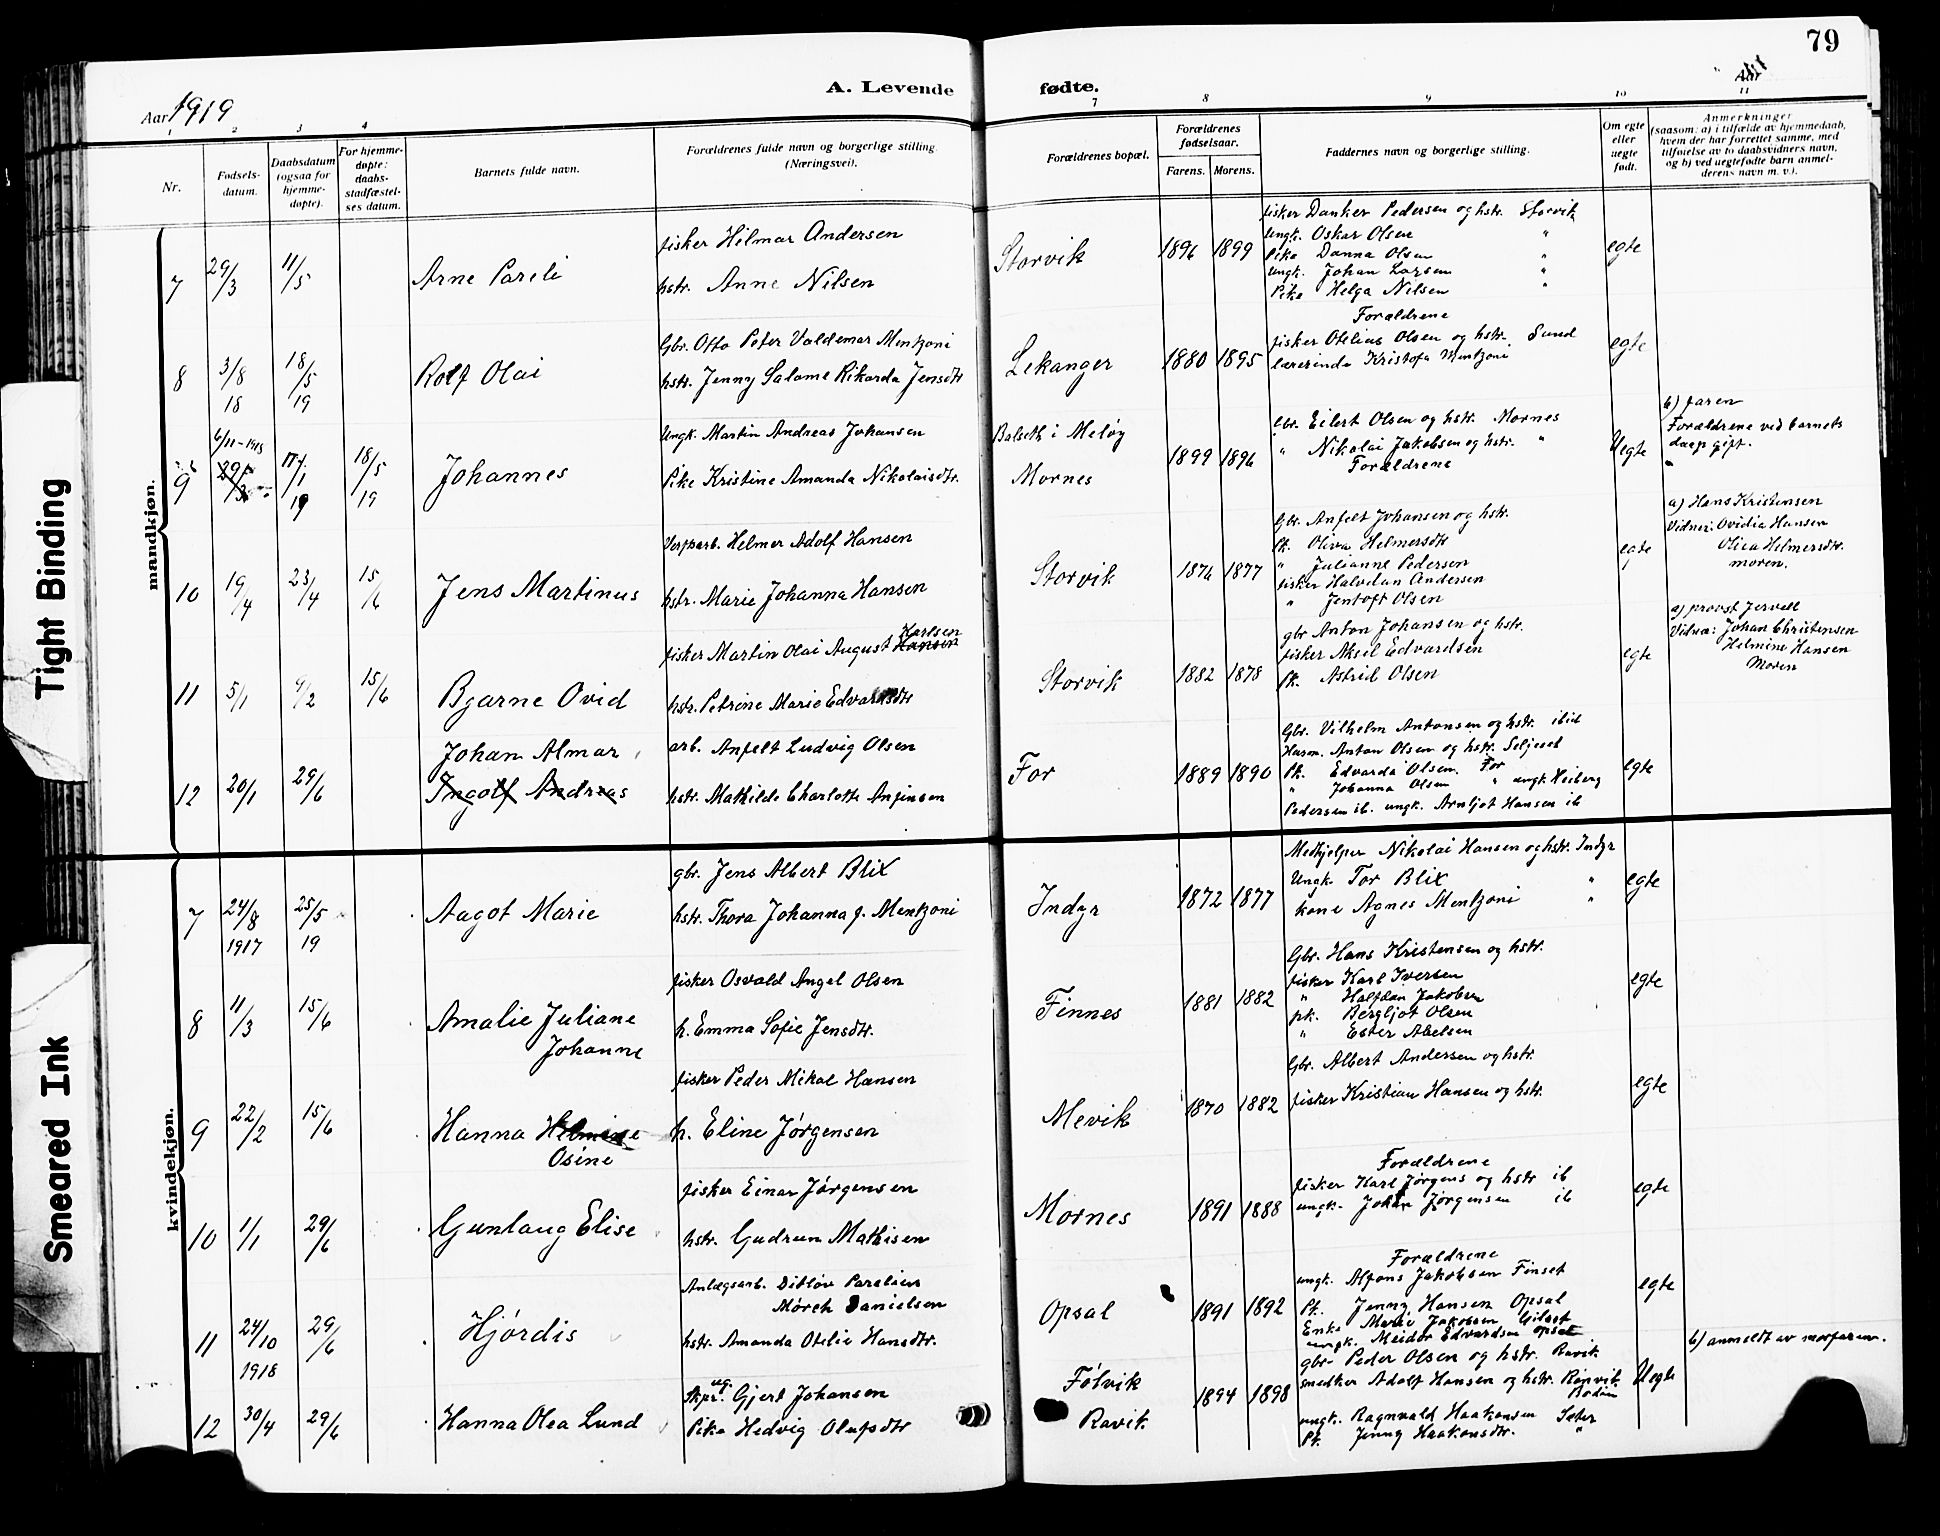 79
Aar 1919
A. Levende fødte.
1 2 3 4 7 8 9 10 11
Nr.
Fødsels-
datum.
Daabsdatum
(ogsaa for
hjemme-
døpte).
For hjemme-
døpte:
daabs-
stadfæstel-
ses datum.
Barnets fulde navn.
Forældrenes fulde navn og borgerlige stilling.
(Næringsvei).
Forældrenes bopæl.
Forældrenes
fødselsaar.
Farens. Morens.
Faddernes navn og borgerlige stilling.
Om egte
eller
uegte
født.
Anmerkninger
(saasom: a) i tilfælde av hjemmedaab,
hvem der har forrettet samme, med
tilføielse av to daabsvidners navn,
og b) ved uegtefødte barn anmel-
derens navn m. v.).
mandkjøn.
7 29/3 11/5 Arne Pareli
fisker Hilmar Andersen
hstr. Anne Nilsen
Storvik 1896 1899
fisker Danker Pedersen og hstr. Storvik
Ungk. Oskar Olsen "
Pike Danna Olsen "
ungk. Johan Larsen "
Pike Helga Nilsen "
Forældrene
egte
8 3/8 18 18/5 19 Rolf Olai
Gbr. Otto Peter Valdemar Mentzoni
hstr. Jenny Salame Rikarda Jensdtr
Lekanger 1880 1895
fisker Otelius Olsen og hstr. Sund
lærerinde Kristofa Mentzoni
egte
9 6/11-1918 17/1 19 18/5 19 Johannes
Ungk. Martin Andreas Johansen
Pike Kristine Amanda Nikolaisdtr.
Balseth i Meløy
Mornes
1899 1896
gbr. Eilert Olsen og hstr. Mornes
" Nikolai Jakobsen og hstr. "
Forældrene
Uegte
b) faren
Forældrene ved barnets
daap gift.
10 19/4 23/4 15/6 Jens Martinus
Verftsarb. Helmer Adolf Hansen
hstr. Marie Johanna Hansen
Storvik 1876 1877
Gbr. Anfelt Johansen og hstr.
Pk. Oliva Helmersdtr
" Julianne Pedersen
fisker Halvdan Andersen
" Jentoft Olsen
egte
a) Hans Kristensen
Vidner: Ovidia Hansen
Oliva Helmersdtr.
moren.
11 5/1 9/2 15/6 Bjarne Ovid
fisker Martin Olai August Hansen Karlsen
hstr. Petrine Marie Edvardsdtr
Storvik 1882 1878
gbr Anton Johansen og hstr.
fisker Aksel Edvardsen
Pk. Astrid Olsen
egte
a) provst Jervell
Vidner: Johan Christensen
Helmine Hansen
Moren
12 20/1 29/6 Johan Almar
Ingolf Andreas
arb. Anfelt Ludvig Olsen
hstr. Mathilde Charlotte Anfinsen
For 1889 1890
Gbr. Vilhelm Antonsen og hstr. ibid
Husm. Anton Olsen og hstr. Seljeset
Pk. Edvarda Olsen For
" Johanna Olsen " ungk. Heiberg
Pedersen ib. ungk. Arnljot Hansen ib
egte
kvindekjøn.
7 24/8 1917 25/5 19 Aagot Marie
gbr. Jens Albert Blix
hstr. Thora Johanna f. Mentzoni
Indyr 1872 1877
Medhjelper Nikolai Hansen og hstr. Indyr
Ungk. Tor Blix "
kone Agnes Mentzoni "
egte
8 11/3 15/6 Amalie Juliane
Johanne
fisker Osvald Angel Olsen
h. Emma Sofie Jensdtr.
Finnes 1881 1882
Gbr. Hans Kristensen og hstr.
fisker Karl Iversen
" Halfdan Jakobsen
pk. Bergljot Olsen
" Ester Abelsen
egte
9 22/2 15/6 Hanna Helmine
Osine
fisker Peder Mikal Hansen
h. Eline Jørgensen
Mevik 1870 1882
Gbr. Albert Andersen og hstr.
fisker Kristian Hansen og hstr.
egte
10 1/1 29/6 Gunlaug Elise
fisker Einar Jørgensen
hstr. Gudrun Mathisen
Mornes 1891 1888
Forældrene
fisker Karl Jørgens og hstr ib
ungk. Johan Jørgensen ib
egte
11 24/10 1918 29/6 Hjørdis
Anlægsarb. Ditlev Parelius
Mørch Danielsen
hstr. Amanda Otelie Hansdtr.
Opsal 1891 1892
Forældrene
ungk. Alfons Jakobsen Finset
Pk. Jenny Hansen Opsal
Enke Marie Jakobsen Gilset
ungk. Meidor Edvardsen Opsal
egte
12 30/4 29/6 Hanna Olea Lund
Skpr. ug. Gjert Johansen
Pike Hedvig Olufsdtr
Følvik
Ravik
1894 1898
gbr Peder Olsen og hstr. Ravik
smedker Adolf Hansen og hstr. Rønvik
Bodin
ungk. Ragnvald Haakonsen Seter
Pk. Jenny Haakonsdtr. "
Uegte
b) anmeldt av morfaren.
Tight Binding
Smeared Ink